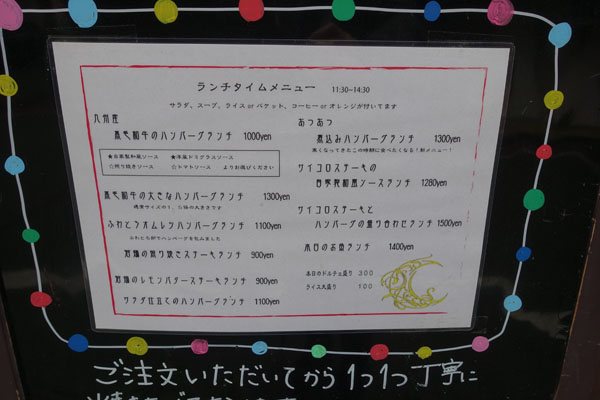 ランチタイムメニュー 11:30-14:30
サラダ、スープ、ライス or バケット、コーヒー or オレンジが付いてます
九州産
黒毛和牛のハンバーグランチ 1000yen
★自家製和風ソース ★洋風デミグラスソース
☆照り焼きソース ☆トマトソース よりお選びください
黒毛和牛の大きなハンバーグランチ 1300yen
ふわとろオムレツハンバーグランチ 1100yen
ふわとろ卵でハンバーグを包みました
の照り焼きステーキランチ 900yen
のレモンバターステーキランチ 900yen
サラダ仕立てのハンバーグランチ 1100yen
あつあつ
煮込みハンバーグランチ 1300yen
寒くなってきたこの時期に食べたくなる！新メニュー！
サイコロステーキの
自家製和風ソースランチ 1280yen
サイコロステーキと
ハンバーグの盛り合わせランチ 1500yen
本日のお魚ランチ 1400yen
本日のドルチェ盛り 300
ライス大盛り 100
ご注文いただいてから1つ1つ丁寧に